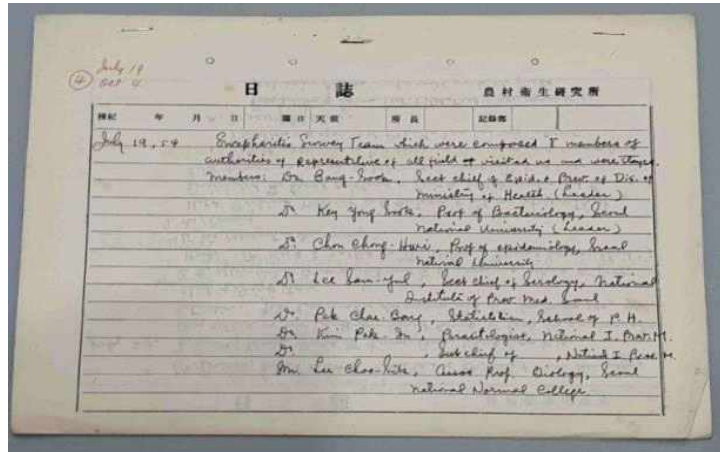 July 19
Oct 4
④
日 誌 農村衛生研究所
年 月 日 曜日 天候 所長 記錄部
July 19, 54 Encepharitis Survey Team which were composed members of
authorities of representative of all field visited us and were stayed.
members: Dr. Bang-Sook, Sect chief of Epidee. Prev. of Dis. of
Ministry of Health (Leader)
Dr. Key Yong Sook, Prof of Bacteriology, Seoul
National University (Leader)
Dr. Chon Chong-Hwi, Prof of epidemiology, Seoul
National University
Dr. Lee Sam-yul, Sect chief of Serology, National
Institute of Prev. Med. Seoul
Dr. Pak Chae Bong, Statistician, School of P. H.
Dr. Kim Pak-In, Parasitologist, National I. Prev. M.
Dr. , Sect chief of , National I. Prev. M.
Mr. Lee Choo-Sik, Asso Prof. Biology, Seoul
National Normal College.